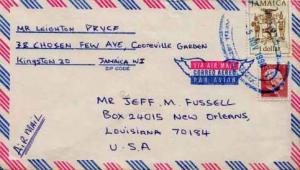 MR LEIGHTON PRYCE
38 CHOSEN FEW AVE, COOREVILLE GARDEN
KINGSTON 20 JAMAICA WI
ZIP CODE
JAMAICA
1 dollar
VIA AIR MAIL
CORREO AEREO
PAR AVION
MR JEFF. M. FUSSELL
BOX 24015 NEW ORLEANS,
LOUISIANA 70184
U.S.A
AIR MAIL